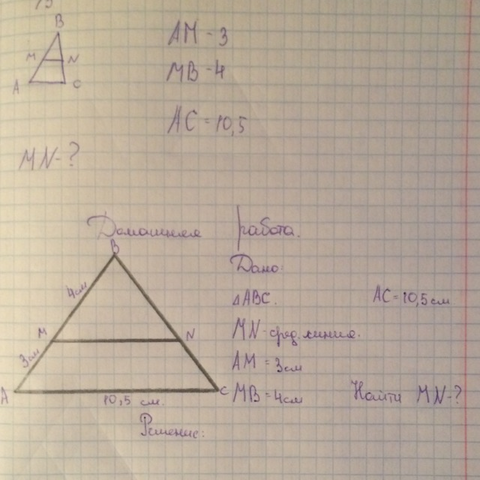 19
B
AM = 3
M N
MB = 4
A C
AC = 10,5
MN - ?
Домашняя работа.
B
Дано:
4см
△ABC. AC = 10,5см
M N
MN - сред. линия.
3см
AM = 3см
A C
MB = 4см Найти MN - ?
10,5 см.
Решение: